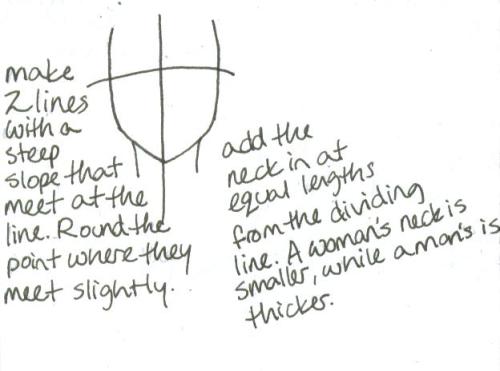 make
2 lines
with a
steep
slope that
meet at the
line. Round the
point where they
meet slightly.
add the
neck in at
equal lengths
from the dividing
line. A woman's neck is
smaller, while a man's is
thicker.